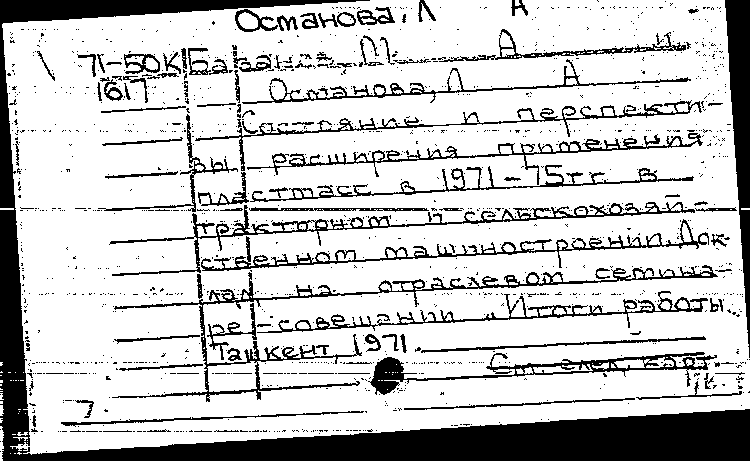 Останова, Л А
71-50К Базанов, М. А и
1617 Останова, Л А
Состояние и перспекти-
вы расширения применения
пластмасс в 1971-75 гг. в
тракторном и сельскохозяй-
ственном машиностроении. Док-
лад на отраслевом семина-
ре-совещании „Итоги работы
Ташкент, 1971.
См. след. карт.
7